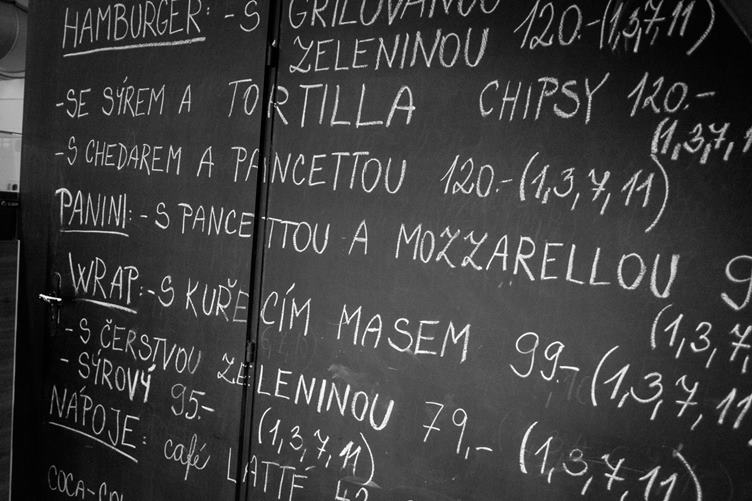 HAMBURGER: - S GRILOVANOU 120.-(1,3,7,11)
ZELENINOU
-SE SÝREM A TORTILLA CHIPSY 120.-
(1,3,7,1
-S CHEDAREM A PANCETTOU 120.-(1,3,7,11)
PANINI: - S PANCETTOU A MOZZARELLOU 9
(1,3,7
WRAP: - S KUŘECÍM MASEM 99.- (1,3,7,11
- S ČERSTVOU ZELENINOU 79,- (1,3,7,11)
- SÝROVÝ 95.- (1,3,7,11)
NÁPOJE: café LATTÉ 42
COCA-CO